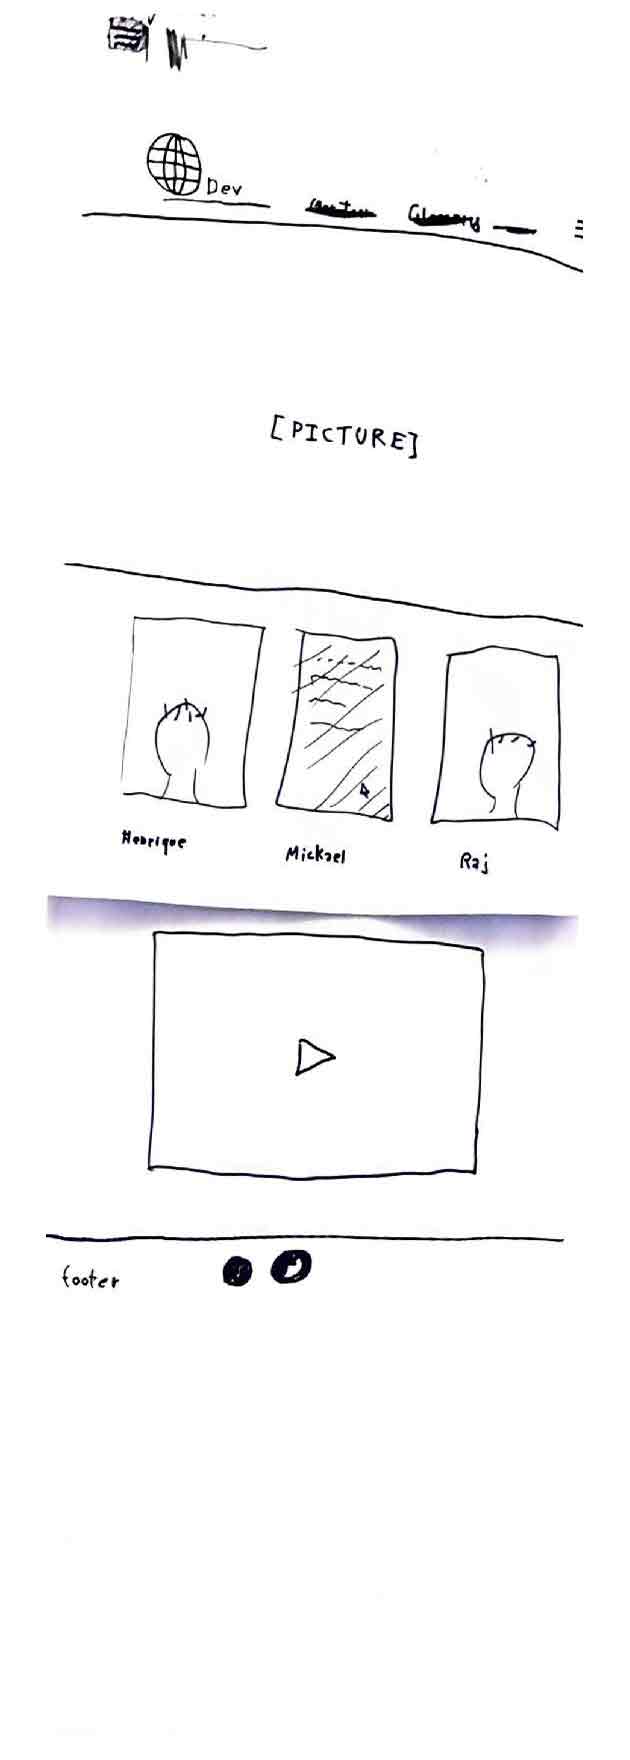 Dev
[PICTURE]
Henrique
Mickael
Raj
footer